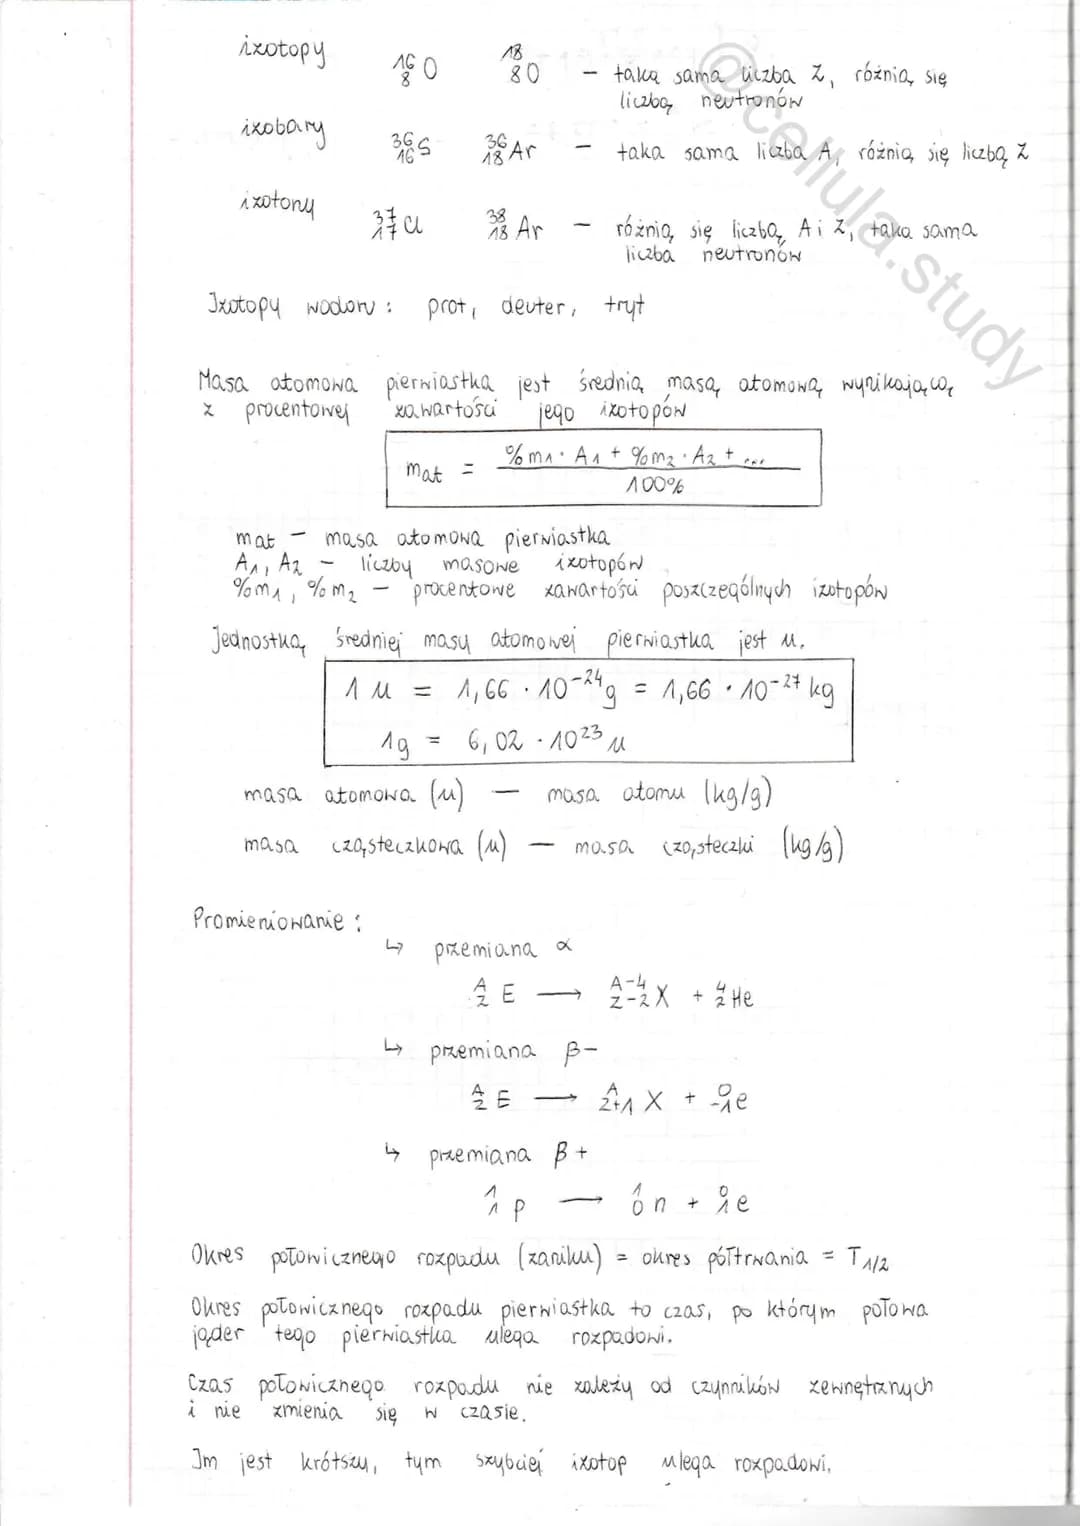 izotopy ¹⁶₈O ¹⁸₈O – taka sama liczba Z, różnią się
liczbą neutronów
izobary ³⁶₁₆S ³⁶₁₈Ar – taka sama liczba A, różnią się liczbą Z
izotony ³⁷₁₇Cl ³⁸₁₈Ar – różnią się liczbą A i Z, taka sama
liczba neutronów
@cellula.study
Izotopy wodoru: prot, deuter, tryt
Masa atomowa pierwiastka jest średnią masą atomową wynikającą
z procentowej zawartości jego izotopów
m_at = (%m₁ · A₁ + %m₂ · A₂ + ...) / 100%
m_at – masa atomowa pierwiastka
A₁, A₂ – liczby masowe izotopów
%m₁, %m₂ – procentowe zawartości poszczególnych izotopów
Jednostką średniej masy atomowej pierwiastka jest u.
1 u = 1,66 · 10⁻²⁴ g = 1,66 · 10⁻²⁷ kg
1g = 6,02 · 10²³ u
masa atomowa (u) — masa atomu (kg/g)
masa cząsteczkowa (u) — masa cząsteczki (kg/g)
Promieniowanie:
↳ przemiana α
ᴬ_Z E → ᴬ⁻⁴_Z-2 X + ⁴₂He
↳ przemiana β-
ᴬ_Z E → ᴬ_Z+1 X + ⁰₋₁e
↳ przemiana β+
¹₁p → ¹₀n + ⁰₁e
Okres połowicznego rozpadu (zaniku) = okres półtrwania = T₁/₂
Okres połowicznego rozpadu pierwiastka to czas, po którym połowa
jąder tego pierwiastka ulega rozpadowi.
Czas połowicznego rozpadu nie zależy od czynników zewnętrznych
i nie zmienia się w czasie.
Im jest krótszy, tym szybciej izotop ulega rozpadowi.